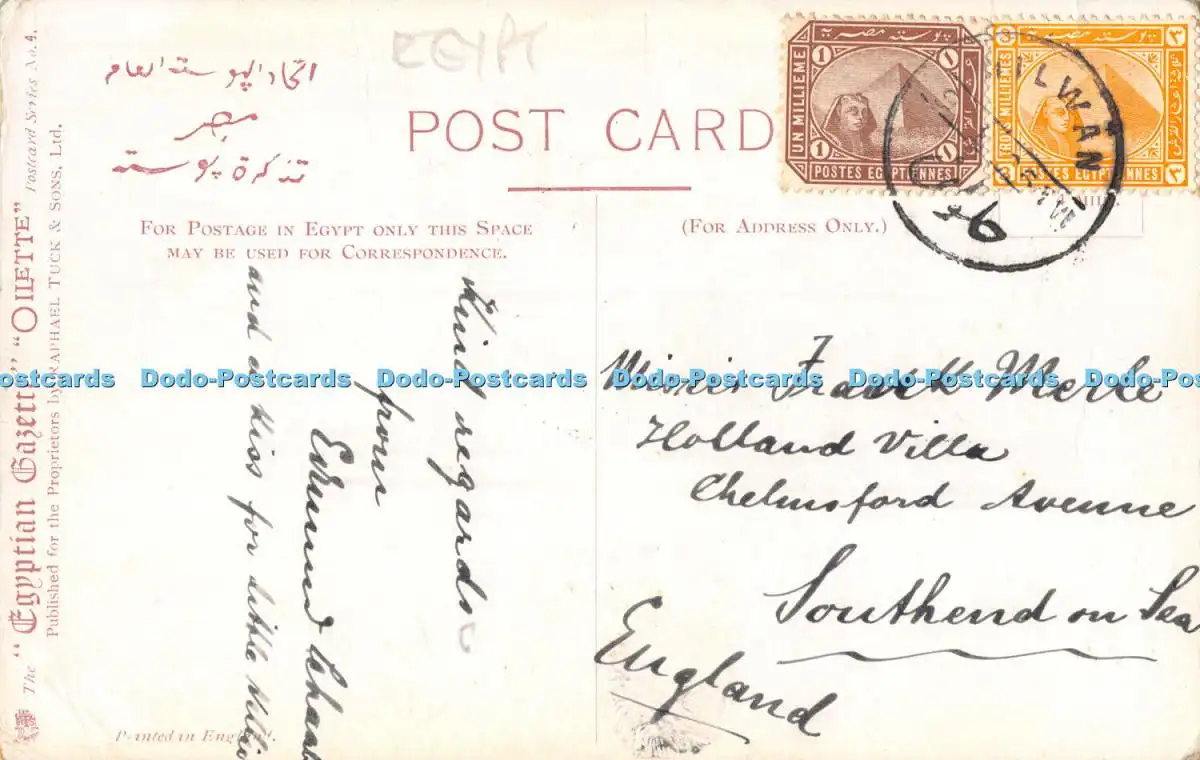 EGYPT
اتحاد البوسته العام
مصر
تذكرة بوسته
POST CARD
FOR POSTAGE IN EGYPT ONLY THIS SPACE
MAY BE USED FOR CORRESPONDENCE.
(FOR ADDRESS ONLY.)
پوسته مصريه
1
UN MILLIEME
1
POSTES EGYPTIENNES
پوسته مصريه
3
TROIS MILLIEMES
3
POSTES EGYPTIENNES
HILWAN
Kind regards
from
Edmund
and a kiss for little
Frank Merke
Holland Villa
Chelmsford Avenue
Southend on Sea
England
The "Egyptian Gazette" "OILETTE" Postcard Series No. 4.
Published for the Proprietors by RAPHAEL TUCK & SONS, Ltd.
Printed in England.
Dodo-Postcards Dodo-Postcards Dodo-Postcards Dodo-Postcards Dodo-Postcards Dodo-Postcards